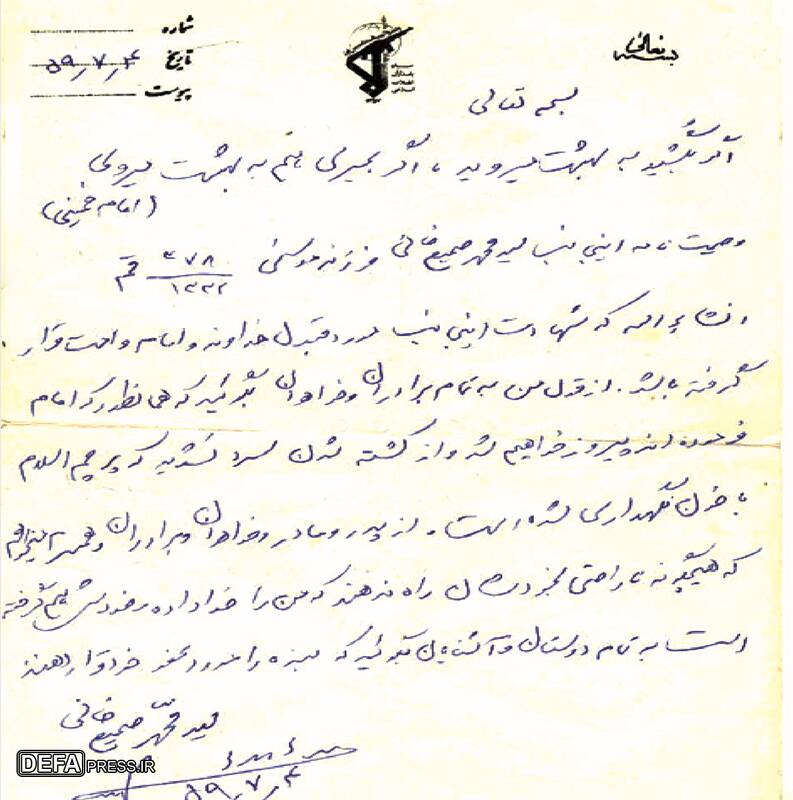 بسمه تعالی
شماره
تاریخ ۵۹٫۷٫۴
پیوست
بسمه تعالی
اگر بکشید به بهشت میروید ، اگر بمیرید هم به بهشت میروید
(امام خمینی)
وصیت نامه اینجانب سید محمد صمیع خانی فرزند موسی ۴۷۸ ۱۳۳۲ قم
انشاءالله که شهادت اینجانب مورد قبول خداوند و امام و امت قرار
گرفته باشد . از قول من به تمام برادران و خواهران بگوئید که همانطور که امام
فرموده اند پیروز خواهیم شد و از کشته شدن سرد نشوید که پرچم اسلام
با خون نگهداری شده است . از پدر و مادر و خواهران و برادران و همسرم میخواهم
که هیچگونه ناراحتی بخودشان راه ندهند که من را خدا داده و خودش هم گرفته
است به تمام دوستان و آشنایان بگوئید که بنده را مورد عفو خود قرار دهند
سید محمد صمیع خانی
۵۹٫۷٫۴
DEFAPRESS.IR